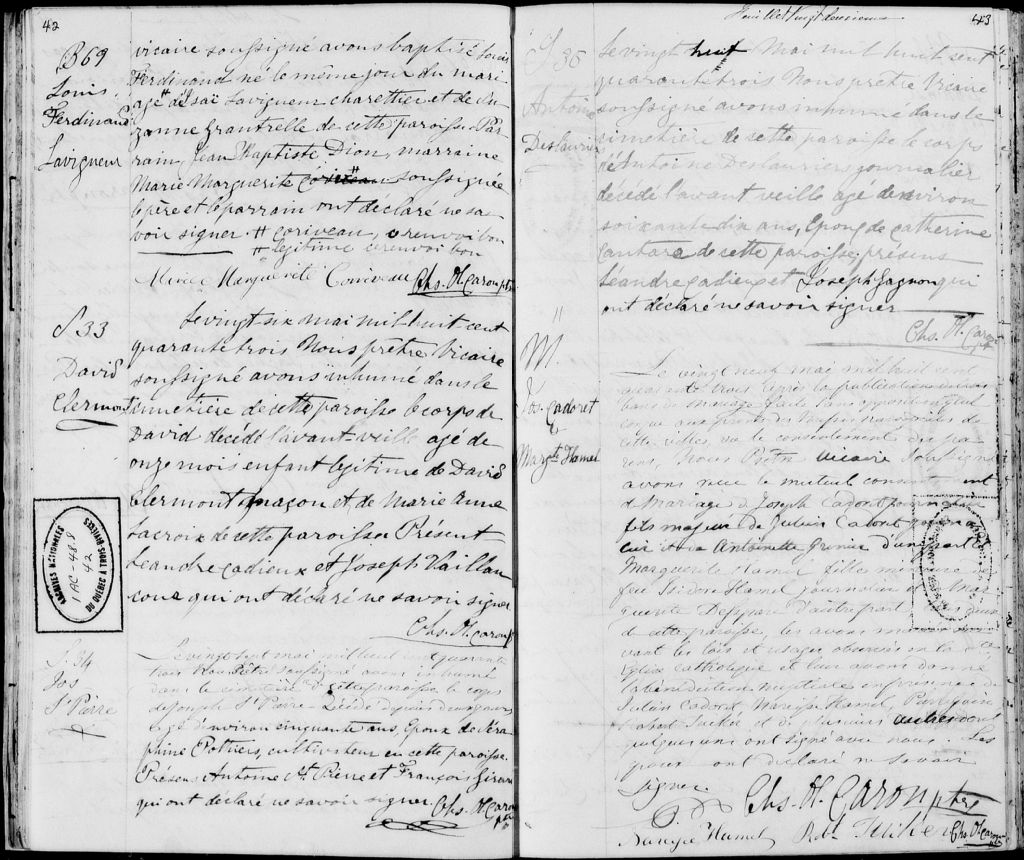 42
B 69
Louis
Ferdinand
Lavigneur
vicaire soussigné avons baptisé Louis
Ferdinand né le même jour du mari
age d'Isaï Lavigneur charettier et de Su
zanne frantrelle de cette paroisse Par
rain, Jean Baptiste Dion, marraine
Marie Marguerite soussignée
le père et le parrain ont déclaré ne sa
voir signer # coriveau, renvoi bon
# legitime renvoi bon
Marguerite Corriveau Chs. H. Caron ptre
S 33
David
Clermont
Le vingt six mai mil huit cent
quarante trois Nous prêtre Vicaire
soussigné avons inhumé dans le
cimetière de cette paroisse le corps de
David décédé l'avant-veille agé de
onze mois enfant legitime de David
Clermont maçon et de Marie Anne
Lacroix de cette paroisse Présent
Leandre Cadieux et Joseph Vaillan
court qui ont déclaré ne savoir signer
Chs. H. Caron ptre
ARCHIVES NATIONALES
1 AC-48.8
42
DU QUÉBEC À TROIS-RIVIÈRES
S. 34
Jos
St Pierre
Le vingt sept mai mil huit cent quarante
trois Nous Prêtre soussigné avons inhumé
dans le cimetière de cette paroisse le corps
de Joseph St Pierre décédé depuis deux jours
agé d'environ cinquante ans Epoux de Séra
phine cultivateur en cette paroisse.
Présens Antoine St. Pierre et François Girard
qui ont déclaré ne savoir signer. Chs. H Caron
ptre
Feuillet vingt deuxieme
43
S 36
Antoine
Deslaurier
Le vingt huit Mai mil huit cent
quarante trois Nous prêtre Vicaire
soussigné avons inhumé dans le
cimetière de cette paroisse le corps
de Antoine Deslauriers journalier
décédé l'avant veille agé d'environ
soixante dix ans, Epoux de Catherine
Cantara de cette paroisse, présens
Léandre Cadieux et Joseph Gagnon qui
ont déclaré ne savoir signer
Chs. H. Caron
ptre
M.
Jos. Cadoret
&
Margte Hamel
Le vingt neuf mai mil huit cent
quarante trois après la publication de
bans de mariage faite sans opposition quel
conque aux prônes des Messes paroissiales de
cette ville, vu le consentement des pa
rens, Nous Prêtre vicaire Soussigné
avons reçu le mutuel consentement
de Mariage de Joseph Cadoret
fils majeur de Julien Cadoret
et de Antoinette Grenier d'une part et
Marguerite Hamel fille mineure de
feu Isidore Hamel journalier et de Mar
guerite d'autre part tous deux
de cette paroisse, les avons
vant les lois et usages observés en la Ste
Eglise Catholique et leur avons donné
la bénédiction nuptiale en présence de
Julien Cadoret, Narcisse Hamel,
Robert Tucker et de plusieurs autres dont
quelques uns ont signé avec nous. Les
ont déclaré ne savoir
signer.
Chs. H. Caron ptre
Narcisse Hamel Robt Tucker Chs. H Caron
ptre